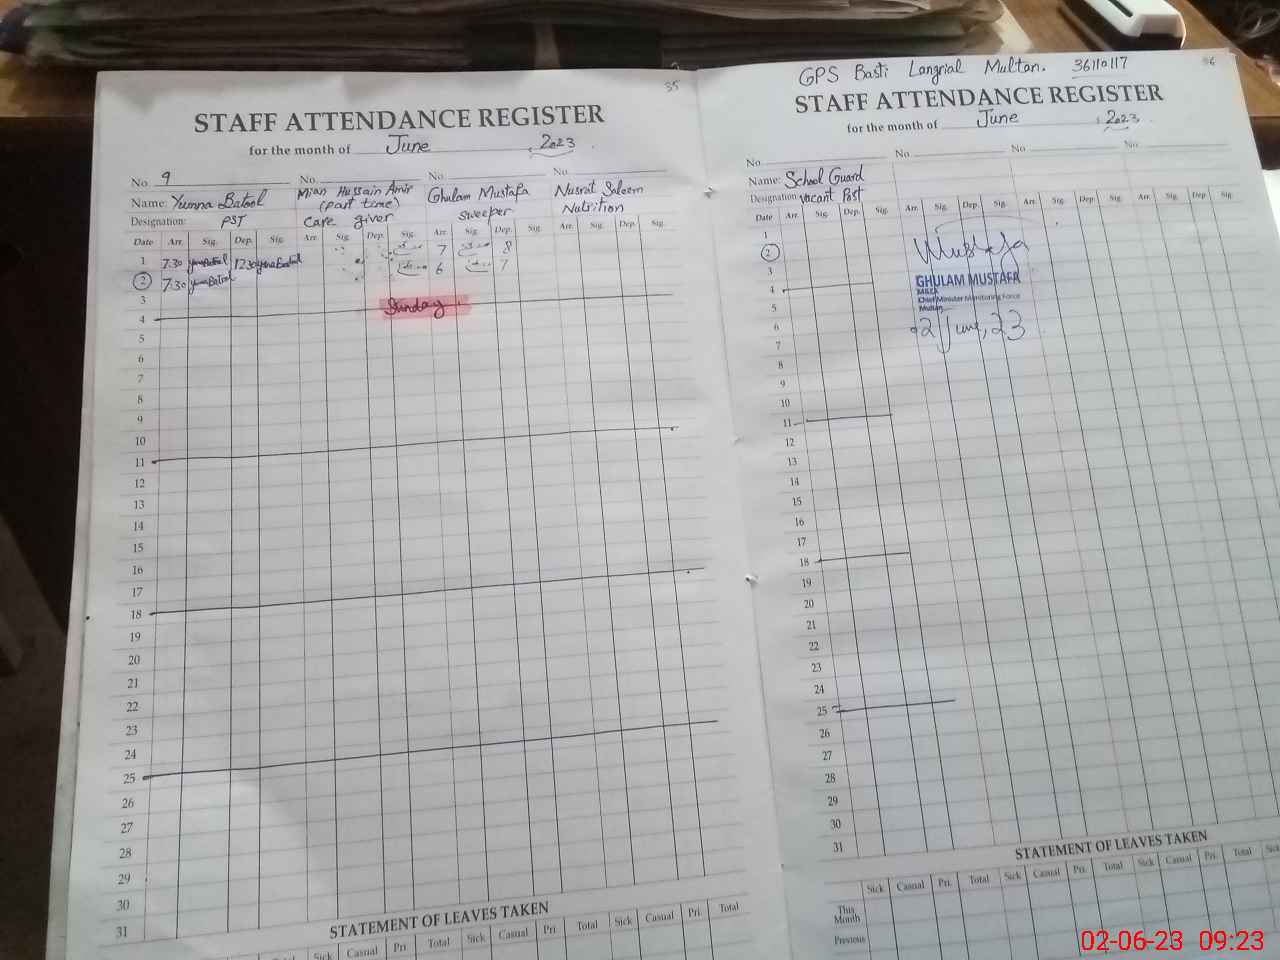 35
STAFF ATTENDANCE REGISTER
for the month of June 2023
No. 9 No. No. No.
Name: Yumna Batool Mian Hussain Amir (part time) Ghulam Mustafa Nusrat Saleem
Designation: PST Care giver Sweeper Nutrition
Date Arr. Sig. Dep. Sig. Arr. Sig. Dep. Sig. Arr. Sig. Dep. Sig. Arr. Sig. Dep. Sig.
1 7:30 Yumna Batool 12:30 Yumna Batool 7 8
2 7:30 Yumna Batool 6 7
3 Sunday
4
5
6
7
8
9
10
11
12
13
14
15
16
17
18
19
20
21
22
23
24
25
26
27
28
29
30
31
STATEMENT OF LEAVES TAKEN
Total Sick Casual Pri Total Sick Casual Pri Total
GPS Basti Langrial Multan. 36110117
36
STAFF ATTENDANCE REGISTER
for the month of June 2023
No. No. No. No.
Name: School Guard
Designation: Vacant Post
Date Arr. Sig. Dep. Sig. Arr. Sig. Dep. Sig. Arr. Sig. Dep. Sig. Arr. Sig. Dep. Sig.
1
2 Mustafa
3
4 GHULAM MUSTAFA
MEA
Chief Minister Monitoring Force
5 Multan
6 02 June, 23
7
8
9
10
11
12
13
14
15
16
17
18
19
20
21
22
23
24
25
26
27
28
29
30
31
STATEMENT OF LEAVES TAKEN
Sick Casual Pri. Total Sick Casual Pri. Total Sick Casual Pri. Total Sick
This Month
Previous
02-06-23 09:23